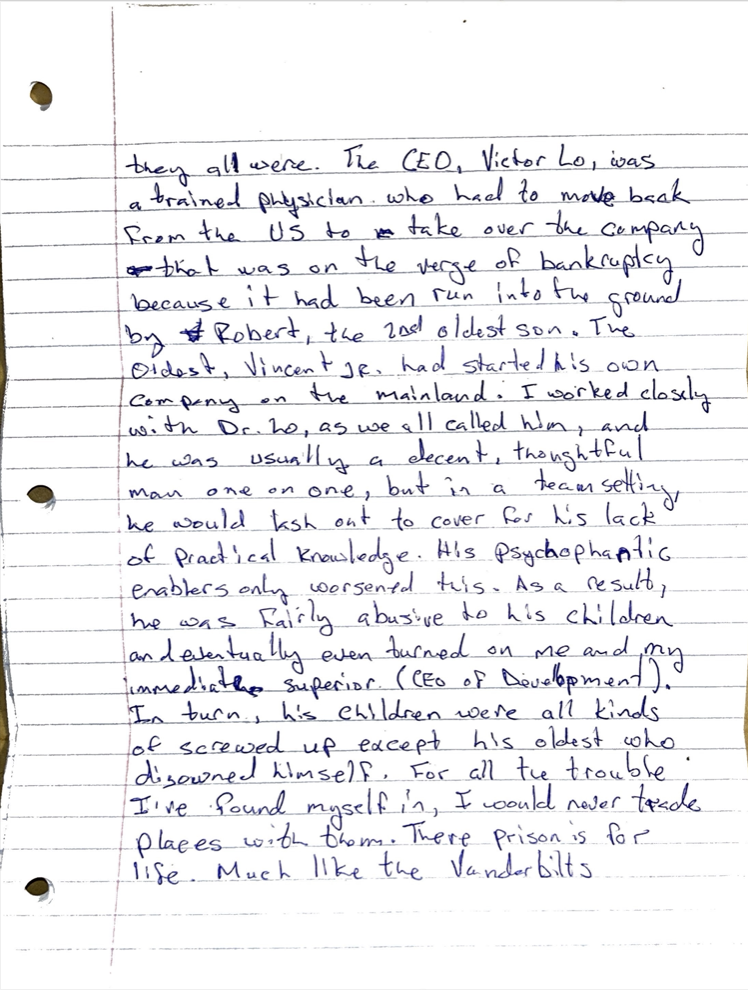 they all were. The CEO, Victor Lo, was
a trained physician who had to move back
from the US to take over the company
that was on the verge of bankruptcy
because it had been run into the ground
by Robert, the 2nd oldest son. The
oldest, Vincent Jr. had started his own
company on the mainland. I worked closely
with Dr. Lo, as we all called him, and
he was usually a decent, thoughtful
man one on one, but in a team setting,
he would lash out to cover for his lack
of practical knowledge. His psychophantic
enablers only worsened this. As a result,
he was fairly abusive to his children
and eventually even turned on me and my
immediate superior (CEO of Development).
In turn, his children were all kinds
of screwed up except his oldest who
disowned himself. For all the trouble
I've found myself in, I would never trade
places with them. There prison is for
life. Much like the Vanderbilts